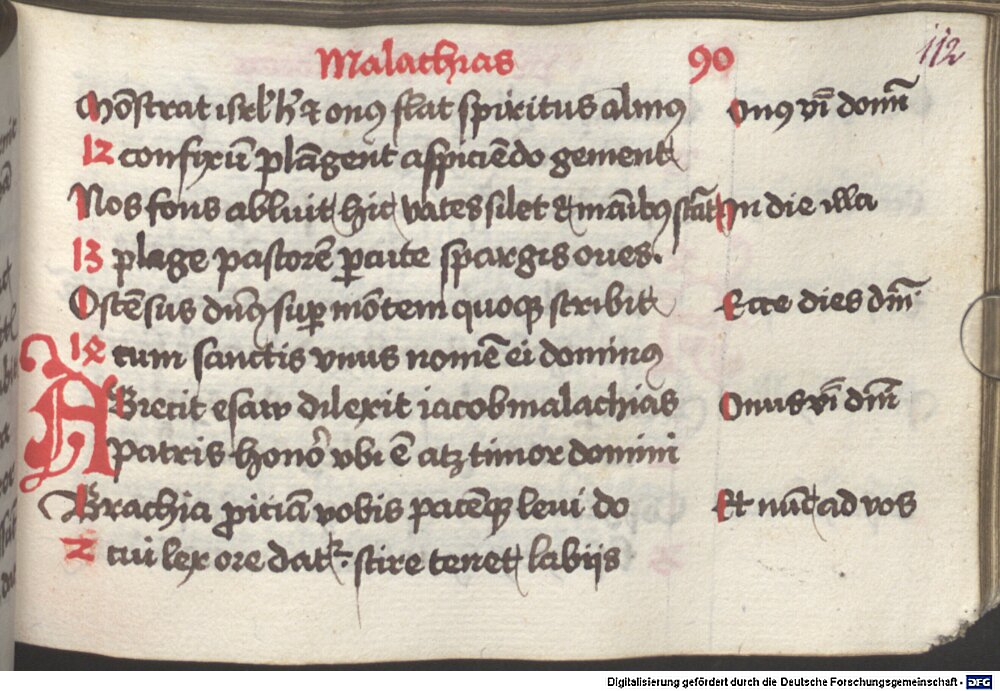 Malachias 90 112
Mōstrat isrl' h' & onꝰ flat spiritus almꝰ Onꝰ vī domī
12 confixū plāgent aspiciēdo gement
Nos fons abluit hic vates silet & māibꝰ In die illa
13 plage pastorē ꝑcute spargis oues.
Ostēsus dn̄s suꝑ mōtem quoqꝫ scribit Ecce dies dn̄i
14 cum sanctis vnus nomē ei dominꝰ
ABiecit esaw dilexit iacob malachias Onus vī dn̄i
Patris honor vbi ē atqꝫ timor domini
Brachia ꝓiciā vobis pacēqꝫ leui do Et nūc ad vos
2 cui lex ore datr. scire tenet labijs
Digitalisierung gefördert durch die Deutsche Forschungsgemeinschaft - DFG